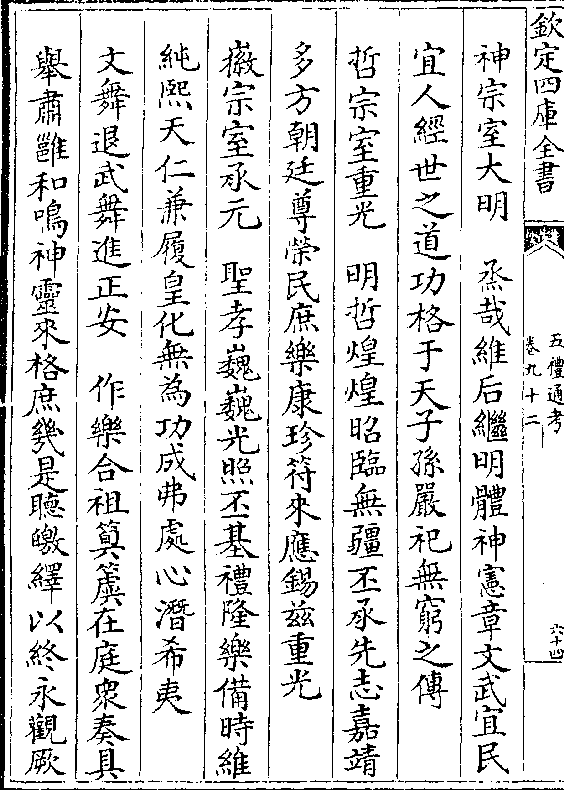 欽定四庫全書
五禮通考
卷九十二
六十四
神宗室大明　烝哉維后繼明體神憲章文武宜民
宜人經世之道功格于天子孫嚴祀無窮之傳
哲宗室重光　明哲煌煌昭臨無疆丕承先志嘉靖
多方朝廷尊榮民庶樂康珍符來應錫茲重光
徽宗室承元　聖孝巍巍光照丕基禮隆樂備時維
純熙天仁兼履皇化無為功成弗處心潛希夷
文舞退武舞進正安　作樂合祖簨簴在庭衆奏具
舉肅雝和鳴神靈來格庶幾是聽皦繹以終永觀厥